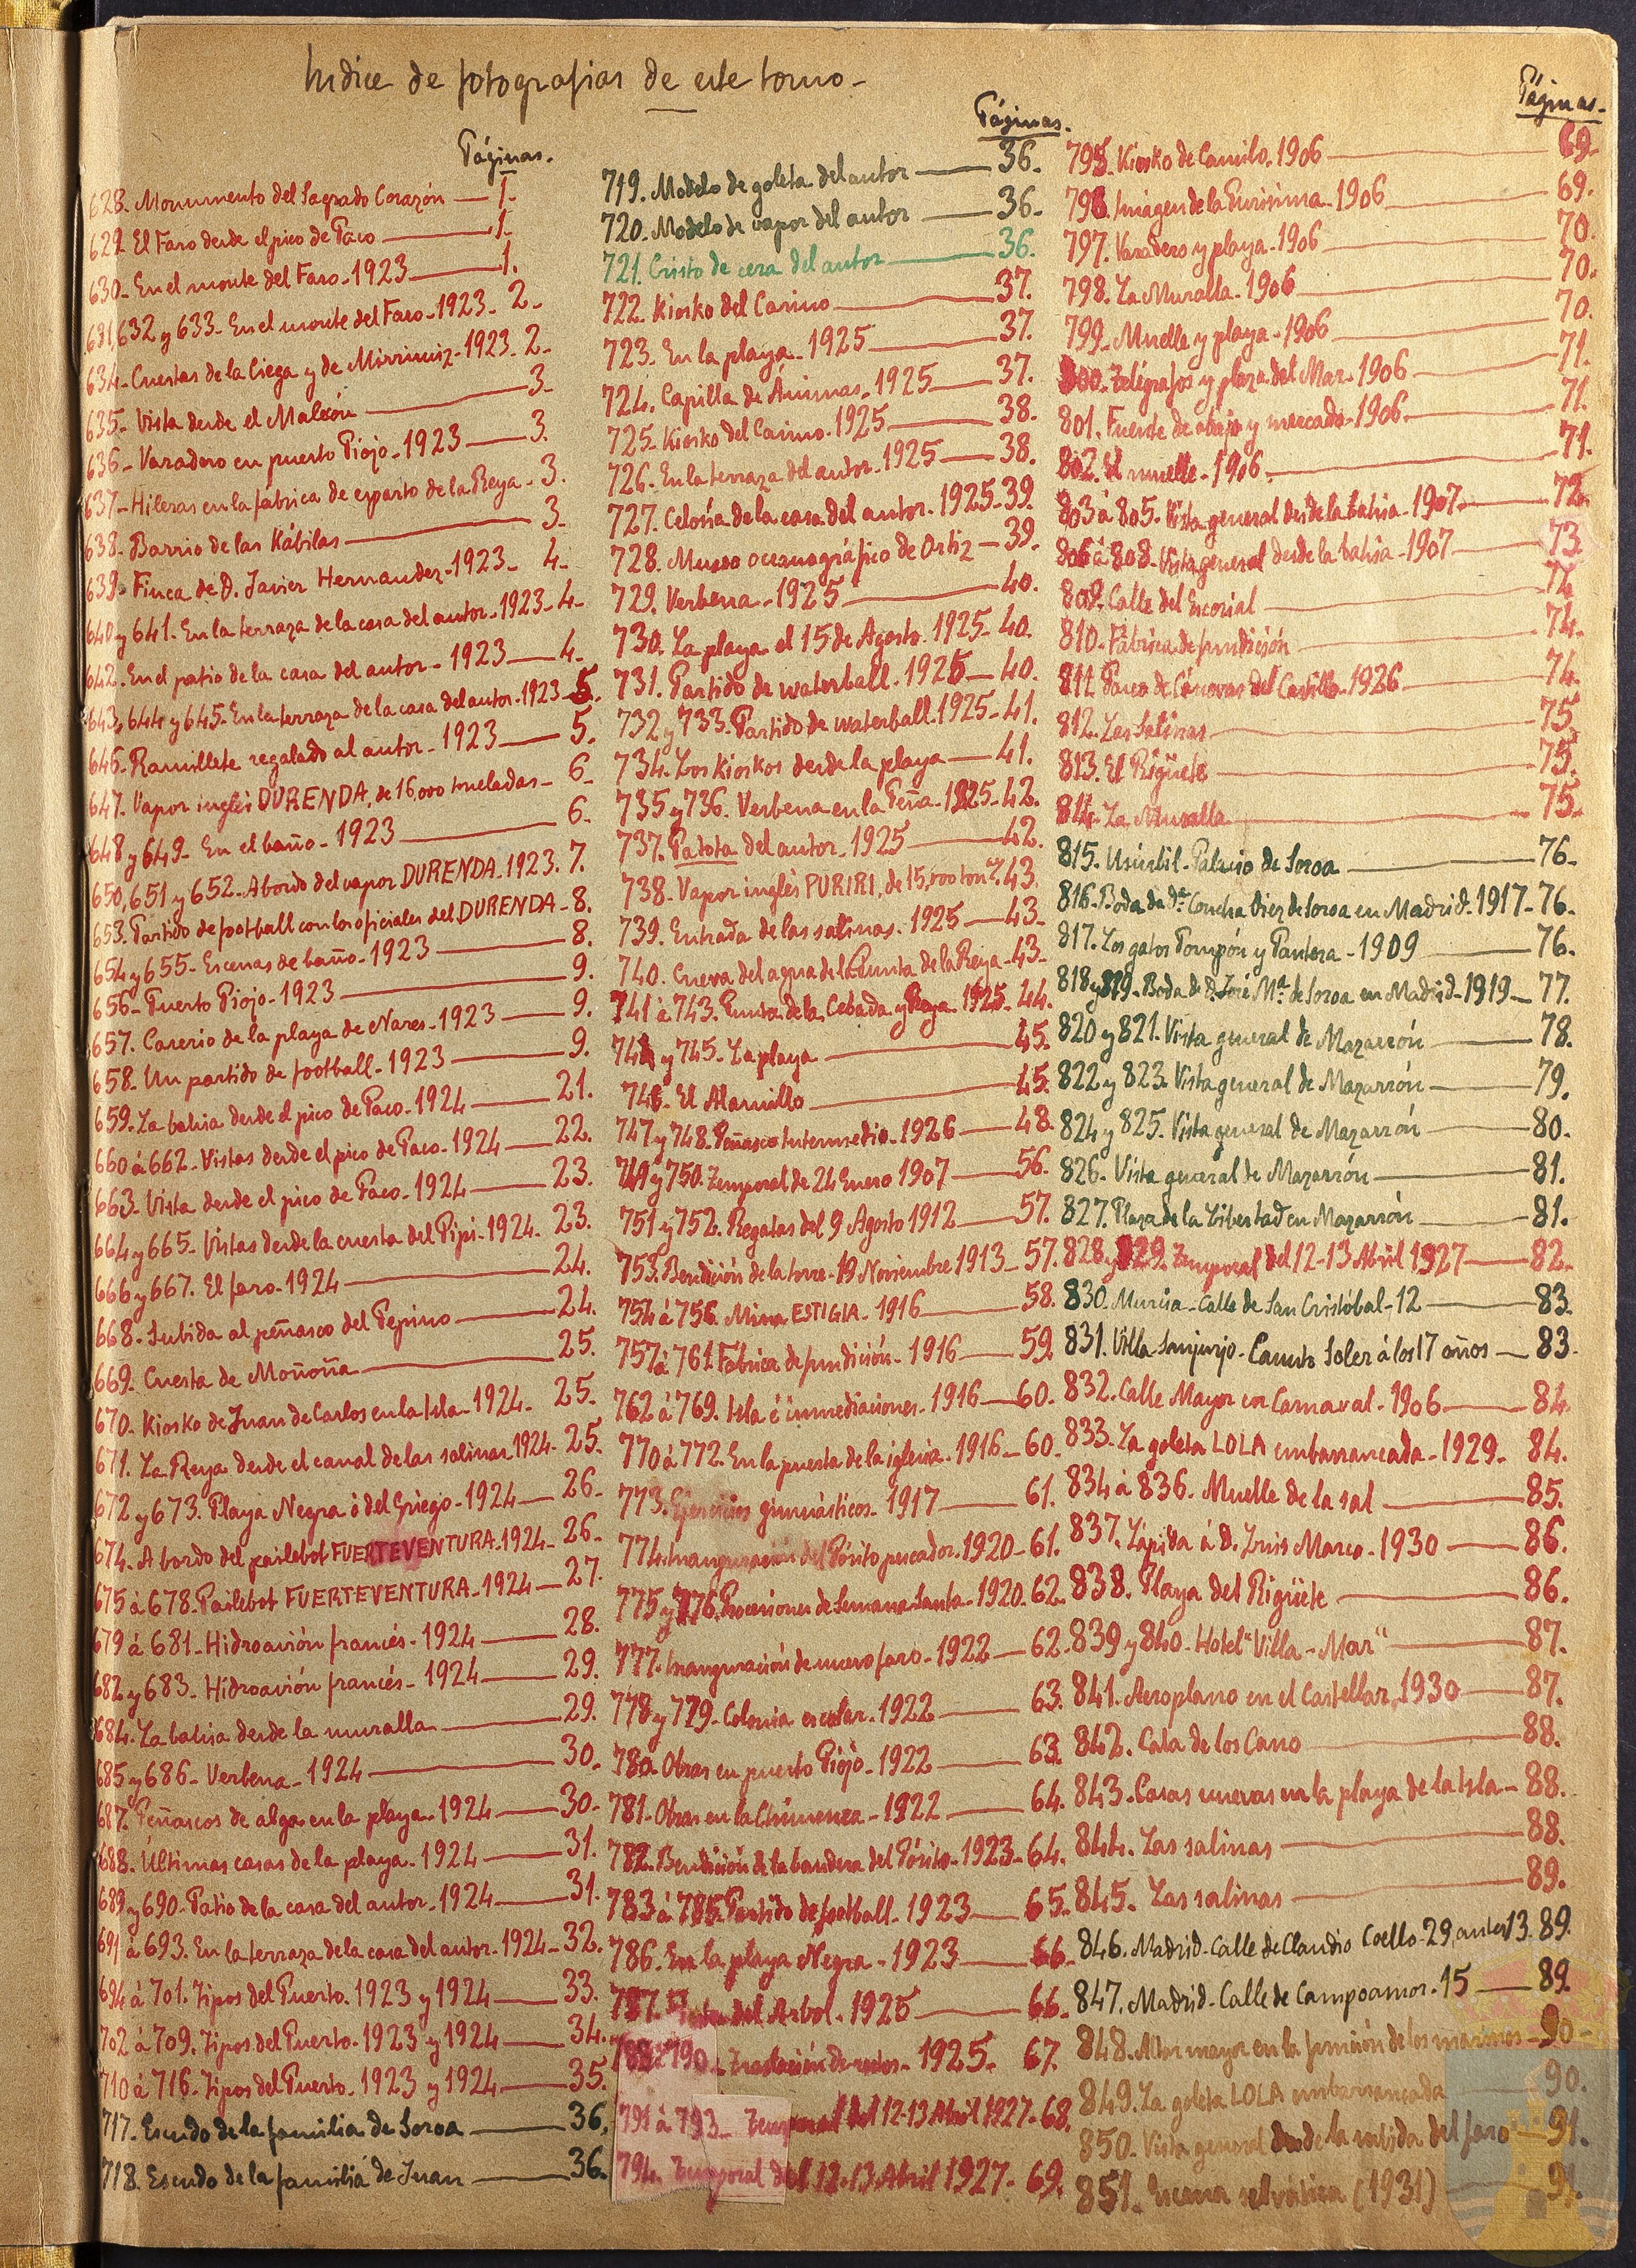 Indice de fotografias de este tomo-
Páginas.
628. Monumento del Sagrado Corazón — 1.
629. El Faro desde el pico de Paco — 1.
630- En el monte del Faro-1923 — 1.
631, 632 y 633- En el monte del Faro-1923- 2-
634- Cuestas de la Ciega y de Mirrimiz-1923- 2-
635- Vista desde el Malecón — 3-
636- Varadero en puerto Piojo-1923 — 3.
637- Hileras en la fábrica de esparto de la Reya- 3.
638- Barrio de las Kábilas — 3-
639- Finca de D. Javier Hernandez-1923- 4-
640 y 641- En la terraza de la casa del autor-1923-4-
642- En el patio de la casa del autor-1923 — 4-
643, 644 y 645- En la terraza de la casa del autor-1923-5.
646- Ramillete regalado al autor-1923 — 5.
647. Vapor inglés DURENDA, de 16,000 toneladas- 6-
648 y 649- En el baño-1923 — 6-
650, 651 y 652- A bordo del vapor DURENDA-1923. 7.
653. Partido de football con los oficiales del DURENDA-8.
654 y 655- Escenas de baño-1923 — 8.
656- Puerto Piojo-1923 — 9.
657. Caserio de la playa de Nares-1923 — 9.
658- Un partido de football-1923 — 9.
659. La bahia desde el pico de Paco-1924 — 21.
660 á 662- Vistas desde el pico de Paco-1924 — 22.
663- Vista desde el pico de Paco-1924 — 23.
664 y 665- Vistas desde la cuesta del Pipi-1924. 23.
666 y 667. El faro-1924 — 24.
668- Subida al peñasco del Pepino — 24.
669. Cuesta de Moñoña — 25.
670- Kiosko de Juan de Carlos en la Isla-1924- 25.
671. La Reya desde el canal de las salinas 1924- 25.
672 y 673. Playa Negra ó del Griego-1924 — 26-
674. A bordo del pailebot FUERTEVENTURA-1924- 26-
675 á 678- Pailebot FUERTEVENTURA-1924 — 27.
679 á 681- Hidroavión francés-1924 — 28.
682 y 683- Hidroavión francés-1924 — 29.
684. La bahia desde la muralla — 29.
685 y 686- Verbena-1924 — 30-
687. Peñascos de alga en la playa-1924 — 30-
688. Últimas casas de la playa-1924 — 31.
689 y 690- Patio de la casa del autor-1924 — 31.
691 á 693. En la terraza de la casa del autor-1924-32.
694 á 701. Tipos del Puerto-1923 y 1924 — 33.
702 á 709. Tipos del Puerto-1923 y 1924 — 34.
710 á 716. Tipos del Puerto-1923 y 1924 — 35.
717. Escudo de la familia de Soroa — 36.
718. Escudo de la familia de Juan — 36.
Páginas.
719. Modelo de goleta del autor — 36.
720. Modelo de vapor del autor — 36-
721. Cristo de cera del autor — 36.
722. Kiosko del Casino — 37.
723. En la playa-1925 — 37.
724. Capilla de Ánimas-1925 — 37.
725- Kiosko del Casino-1925 — 38.
726- En la terraza del autor-1925 — 38.
727. Celosía de la casa del autor-1925-39.
728. Museo oceanográfico de Ortiz — 39.
729. Verbena-1925 — 40.
730. La playa el 15 de Agosto-1925- 40.
731. Partido de waterball-1925- 40.
732 y 733. Partido de waterball-1925-41.
734. Los kioskos desde la playa — 41.
735 y 736. Verbena en la Peña-1925-42.
737. Patota del autor-1925 — 42.
738- Vapor inglés PURIRI, de 15,500 ton.s 43.
739. Entrada de las salinas-1925 — 43-
740. Cueva del agua del Punta de la Reya-43-
741 á 743. Punta de la Cebada y Reya-1925-44.
744 y 745- La playa — 45.
746- El Alamillo — 45.
747 y 748. Peñasco Intermedio-1926 — 48.
749 y 750. Temporal de 21 Enero 1907 — 56.
751 y 752. Regatas del 9 Agosto 1912 — 57.
753. Bendición de la torre-19 Noviembre 1913-57.
754 á 756- Mina ESTIGIA-1916 — 58.
757 á 761. Fábrica de fundición-1916 — 59.
762 á 769. Isla é inmediaciones-1916 — 60.
770 á 772. En la puerta de la iglesia-1916- 60.
773. Ejercicios gimnásticos-1917 — 61.
774. Inauguración del Pósito pescador-1920-61.
775 y 776. Procesiones de Semana Santa-1920-62.
777. Inauguración de nuevo faro-1922 — 62.
778 y 779- Colonia escolar-1922 — 63.
780. Obras en puerto Piojo-1922 — 63.
781. Obras en la Chimenea-1922 — 64.
782. Bendición de la bandera del Pósito-1923-64.
783 á 785. Partido de football-1923 — 65.
786. En la playa Negra-1923 — 66-
787. Fiesta del Arbol-1925 — 66.
788 á 790. Traslación de restos-1925- 67.
791 á 793- Temporal del 12-13 Abril 1927-68.
794. Temporal del 12-13 Abril 1927- 69.
Páginas-
795. Kiosko de Camilo-1906 — 69-
796. Imagen de la Purisima-1906 — 69.
797. Varadero y playa-1906 — 70.
798. La Muralla-1906 — 70.
799- Muelle y playa-1906 — 70.
800. Telégrafos y plaza del Mar-1906 — 71.
801. Fuente de abajo y mercado-1906 — 71.
802. El muelle-1906 — 71.
803 á 805. Vista general desde la bahia-1907 — 72.
806 á 808. Vista general desde la bahia-1907 — 73.
809. Calle del Escorial — 74.
810- Fábrica de fundición — 74.
811. Paseo de Cánovas del Castillo-1926 — 74.
812. Las Salinas — 75.
813. El Rigüete — 75.
814. La Muralla — 75-
815. Usúrbil-Palacio de Soroa — 76-
816- Boda de Dª Concha Diez de Soroa en Madrid-1917-76-
817. Los gatos Pompón y Pantera-1909 — 76-
818 y 819- Boda de D. José Mª de Soroa en Madrid-1919- 77.
820 y 821. Vista general de Mazarrón — 78.
822 y 823. Vista general de Mazarrón — 79.
824 y 825. Vista general de Mazarrón — 80.
826. Vista general de Mazarrón — 81.
827. Plaza de la Libertad en Mazarrón — 81.
828 y 829. Temporal del 12-13 Abril 1927 — 82-
830. Murcia-Calle de San Cristóbal-12 — 83.
831. Villa Sanjurjo- Camilo Soler á los 17 años — 83.
832. Calle Mayor en Carnaval-1906 — 84.
833. La goleta LOLA embarrancada-1929- 84.
834 á 836. Muelle de la sal — 85.
837. Lápida á D. Luis Marco-1930 — 86.
838. Playa del Rigüete — 86.
839 y 840- Hotel "Villa-Mar" — 87.
841. Aeroplano en el Castellar, 1930 — 87.
842. Cala de los Cano — 88.
843. Casas nuevas en la playa de la Isla — 88.
844. Las salinas — 88.
845. Las salinas — 89.
846. Madrid-Calle de Claudio Coello-29, antes 13. 89.
847. Madrid-Calle de Campoamor-15 — 89.
848. Altar mayor en la función de los marinos -90-
849. La goleta LOLA embarrancada — 90.
850. Vista general desde la subida del faro — 91.
851. Escena selvática (1931) — 91.